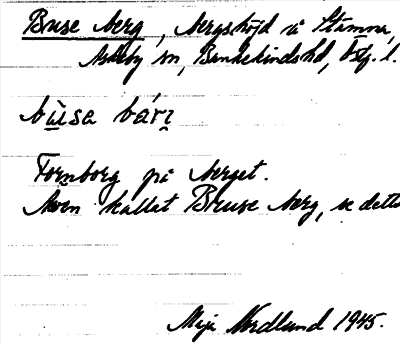 Buse berg, bergshöjd på Stamna,
Askeby sn, Bankekinds hd, Östg. l.
bu̱̇̀sa bárɪ̣
Fornborg på berget.
Även kallat Bruse berg, se detta
Maja Nordlund 1945.